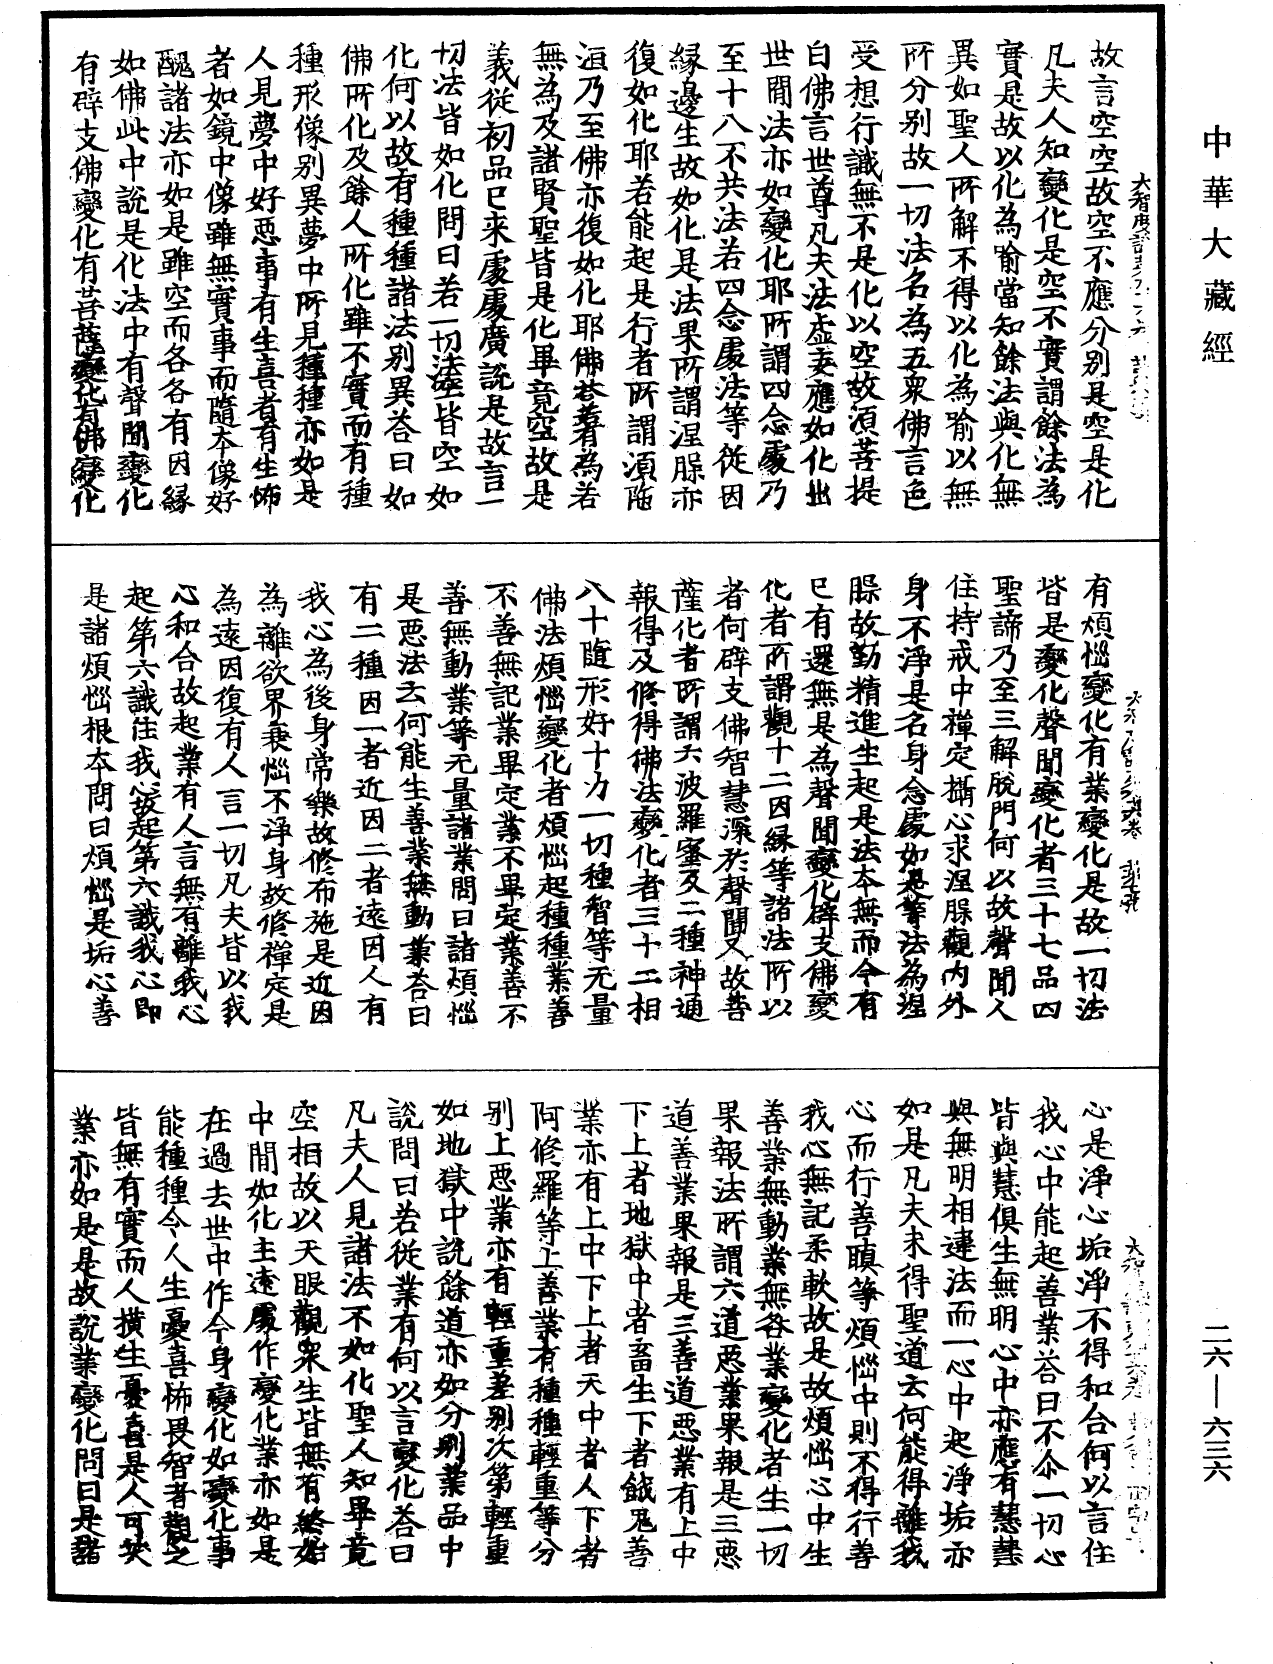 中華大藏經
故言空空故空不應分別是空是化
凡夫人知變化是空不實謂餘法為
實是故以化為喻當知餘法與化無
異如聖人所解不得以化為喻以無
所分別故一切法名為五眾佛言色
受想行識無不是化以空故須菩提
白佛言世尊凡夫法虛妄應如化出
世間法亦如變化耶所謂四念處乃
至十八不共法若四念處法等從因
緣邊生故如化是法果所謂涅槃亦
復如化耶若能起是行者所謂須陁
洹乃至佛亦復如化耶佛荅若有為若
無為及諸賢聖皆是化畢竟空故是
義從初品已來處處廣說是故言一
切法皆如化問曰若一切法皆空如
化何以故有種種諸法別異荅曰如
佛所化及餘人所化雖不實而有種
種形像別異夢中所見種種亦如是
人見夢中好惡事有生喜者有生怖
者如鏡中像雖無實事而隨本像好
醜諸法亦如是雖空而各各有因緣
如佛此中說是化法中有聲聞變化
有辟支佛變化有菩薩變化有佛變化
有煩惱變化有業變化是故一切法
皆是變化聲聞變化者三十七品四
聖諦乃至三解脫門何以故聲聞人
住持戒中禪定攝心求涅槃觀內外
身不淨是名身念處如是等法為涅
槃故勤精進生起是法本無而今有
已有還無是為聲聞變化辟支佛變
化者所謂觀十二因緣等諸法所以
者何辟支佛智慧深於聲聞又故菩
薩化者所謂六波羅蜜及二種神通
報得及修得佛法變化者三十二相
八十隨形好十力一切種智等无量
佛法煩惱變化者煩惱起種種業善
不善無記業畢定業不畢定業善不
善無動業等无量諸業問曰諸煩惱
是惡法云何能生善業無動業荅曰
有二種因一者近因二者遠因人有
我心為後身常樂故修布施是近因
為離欲界衰惱不淨身故修禪定是
為遠因復有人言一切凡夫皆以我
心和合故起業有人言無有離我心
起第六識住我心故起第六識我心即
是諸煩惱根本問曰煩惱是垢心善
心是淨心垢淨不得和合何以言住
我心中能起善業荅曰不尒一切心
皆與慧俱生無明心中亦應有慧慧
與無明相違法而一心中起淨垢亦
如是凡夫未得聖道云何能得離我
心而行善瞋等煩惱中則不得行善
我心無記柔軟故是故煩惱心中生
善業無動業無咎業變化者生一切
果報法所謂六道惡業果報是三惡
道善業果報是三善道惡業有上中
下上者地獄中者畜生下者餓鬼善
業亦有上中下上者天中者人下者
阿修羅等上善業有種種輕重等分
別上惡業亦有輕重差別次第輕重
如地獄中說餘道亦如分別業品中
說問曰若從業有何以言變化荅曰
凡夫人見諸法不如化聖人知畢竟
空相故以天眼觀眾生皆無有終始
中間如化主遠處作變化業亦如是
在過去世中作今身變化如變化事
能種種令人生憂喜怖畏智者觀之
皆無有實而人橫生憂喜是人可笑
業亦如是是故說業變化問曰是諸
二六—六三六